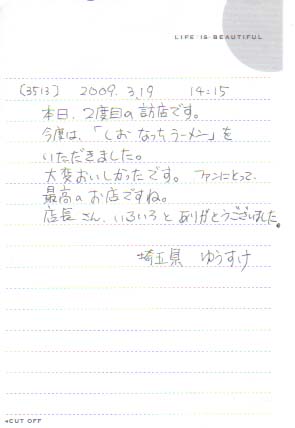 LIFE IS BEAUTIFUL
[3513] 2009.3.19 14:15
本日、2度目の訪店です。
今度は、「しお なっちラーメン」を
いただきました。
大変おいしかったです。ファンにとって、
最高のお店ですね。
店長さん、いろいろとありがとうございました。
埼玉県 ゆうすけ
CUT OFF